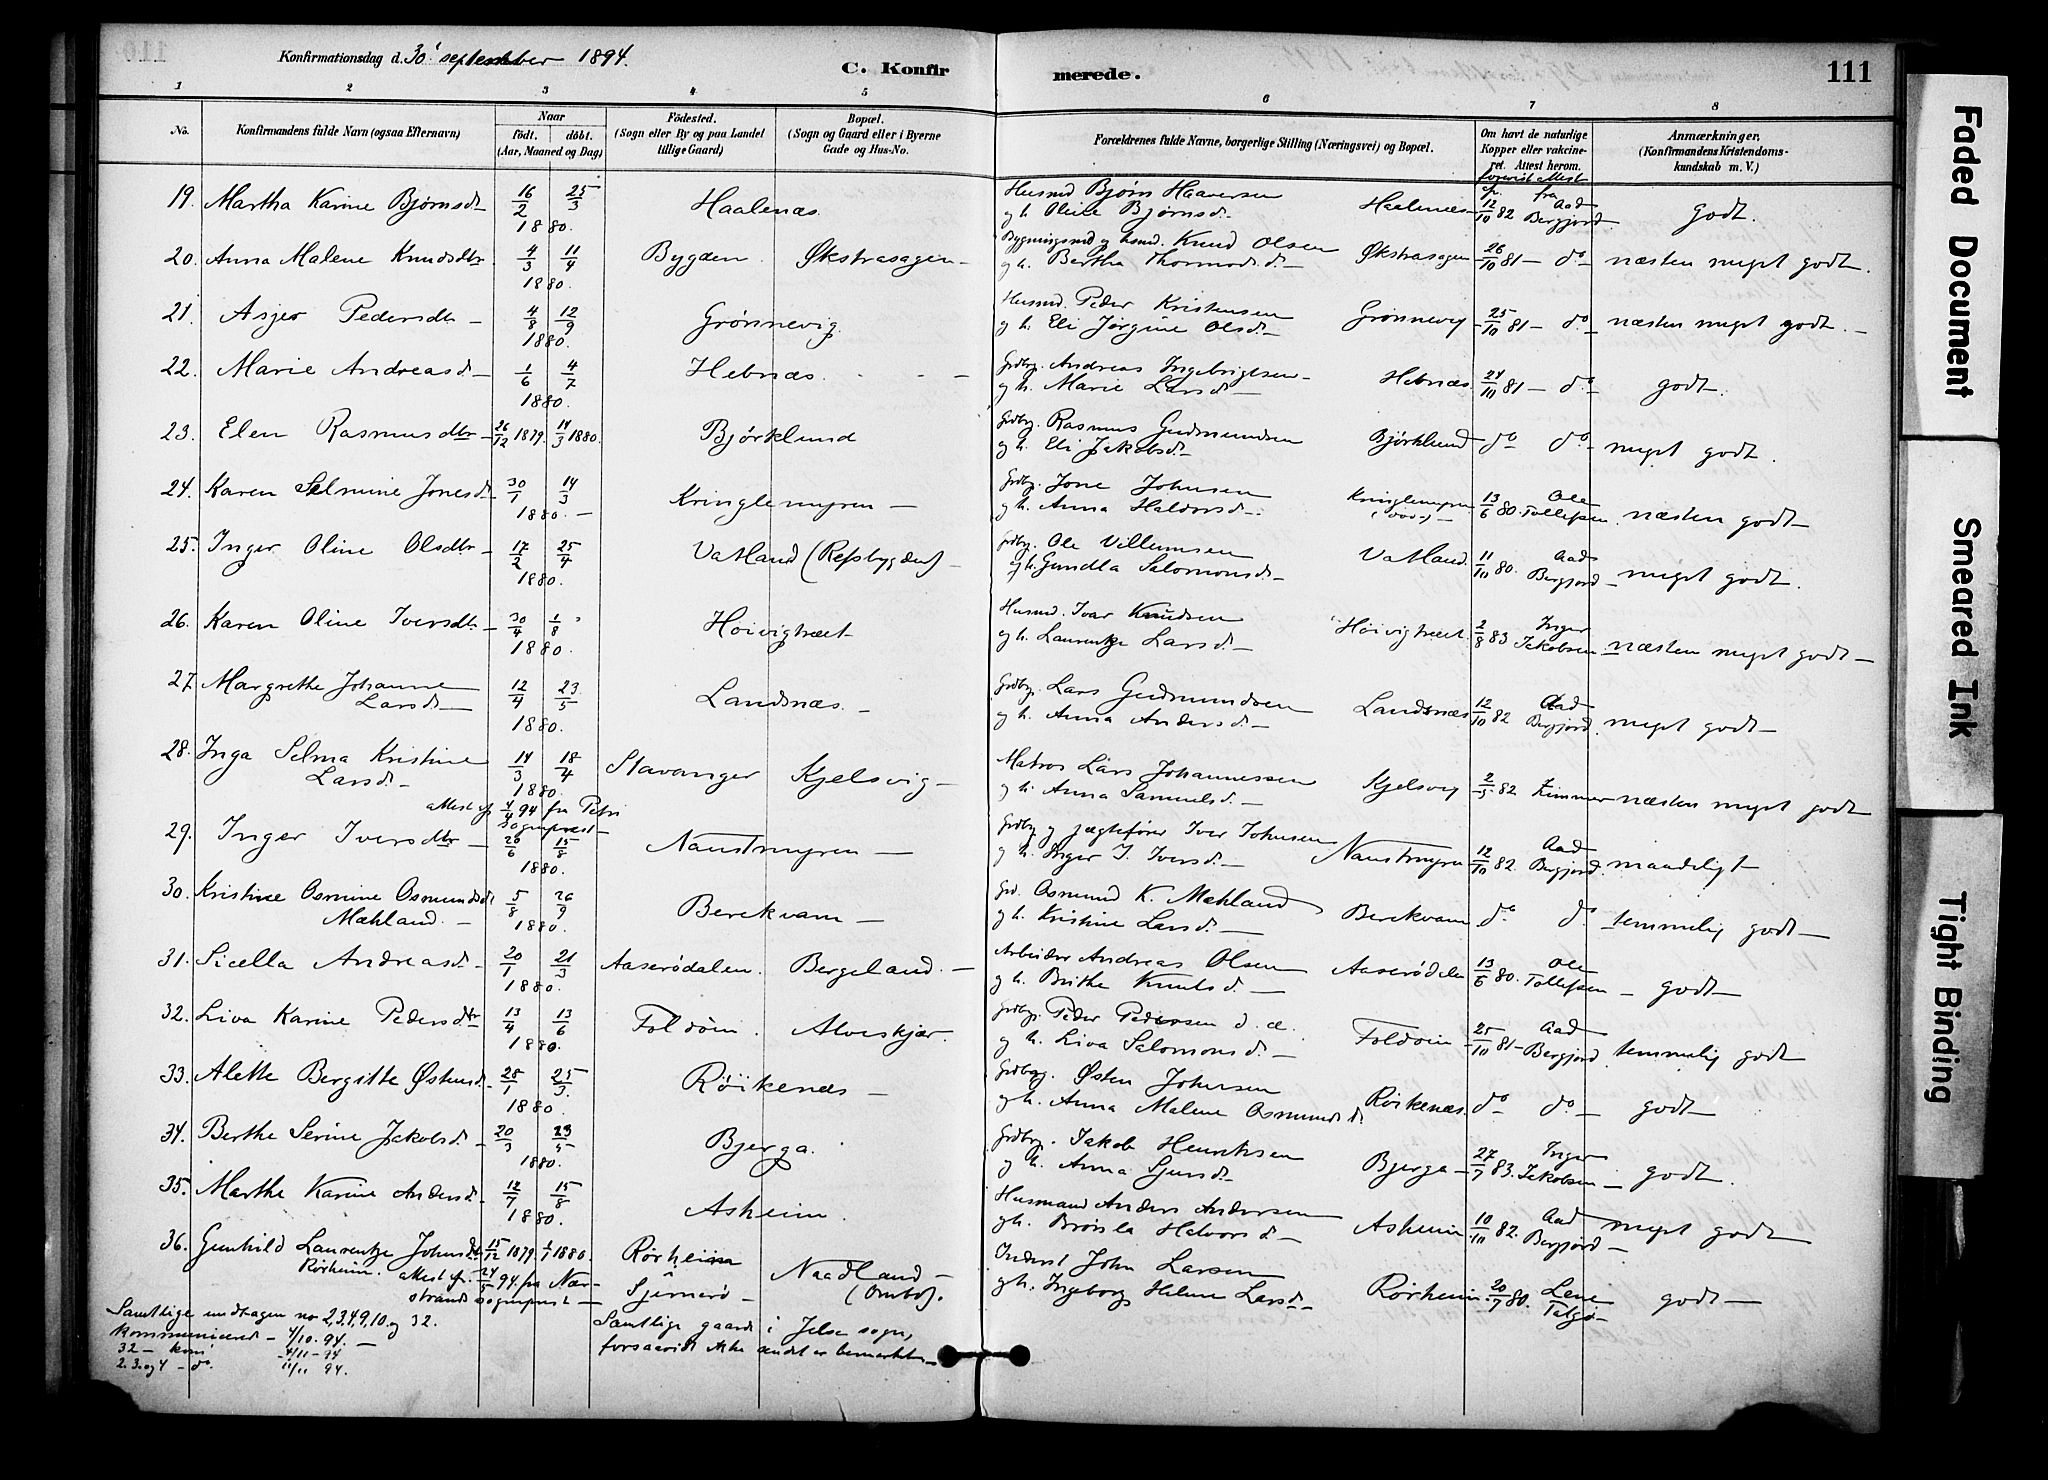 Konfirmationsdag d. 30' september 1894.
C. Konfirmerede.
111
1 2 3 4 5 6 7 8
No.
Konfirmandens fulde Navn (ogsaa Efternavn)
Naar
født. døbt.
(Aar, Maaned og Dag)
Födested.
(Sogn eller By og paa Landet tillige Gaard)
Bopæl.
(Sogn og Gaard eller i Byerne Gade og Hus-No.
Forældrenes fulde Navne, borgerlige Stilling (Næringsvei) og Bopæl.
Om havt de naturlige Kopper eller vakcineret. Attest herom.
Anmærkninger.
(Konfirmandens Kristendomskundskab m. V.)
forevist attest fra
19. Martha Karine Bjørnsd. 16/2 25/3 1880. Haalenæs. Husmd Bjørn Haaversen og h. Oline Bjørnsd. Haalenæs 12/10 82 Aad Bergjord. godt.
20. Anna Malene Knudsdtr. 4/3 11/4 1880. Bygden. Økstrasagen Knud Olsen og h. Bertha Thormodsd. Økstrasagen 26/10 81 do næsten meget godt.
21. Asjer Pedersdtr 4/8 12/9 1880. Grønnevig. Husmd. Peder Kristensen og h. Eli Jørgine Olsd. Grønnevig 25/10 81 do næsten meget godt.
22. Marie Andreasd. 1/6 4/7 1880. Hebnæs. Grdbg. Andreas Ingebrigtsen og h. Marie Larsd. Hebnæs. 24/10 81 do godt.
23. Elen Rasmusdtr 26/12 1879. 14/3 1880. Bjørklund Grdbg. Rasmus Gudmundsen og h. Eli Jakobsd. Bjørklund do do meget godt.
24. Karen Selmine Jonesd. 30/1 14/3 1880. Kringlemyren Grdbg. Jone Johnsen og h. Anna Haldorsd. Kringlemyren 13/6 80. Ole Tollefsen næsten godt
25. Inger Oline Olsdtr 17/2 25/4 1880. Vatland (Refsbygden) Grdbg. Ole Villumsen og h. Gundla Salomonsd. Vatland. 11/10 80. Aad Bergjord meget godt.
26. Karen Oline Iversdtr. 30/4 1/8 1880. Høivigtræet Husmd. Ivar Knudsen og h. Laurentze Larsd. Høivigtræet. 2/8 83 Inger Jakobsen næsten meget godt
27. Margrethe Johanne Larsd. 12/4 23/5 1880. Landsnæs. Grdbg. Lars Gudmundsen og h. Anna Andersd. Landsnæs 12/10 82 Aad Bergjord. meget godt
28. Inga Selma Kristine Larsd. 14/3 18/4 1880. Stavanger Kjelsvig Matros Lars Johannessen og h. Anna Samuelsd. Kjelsvig 2/5 82 Zimmer næsten meget godt
attest af 4/4 94 fra Petri Sogneprest
29. Inger Iversdtr 20/6 15/8 1880. Naustmyren Grdbg og jægtefører Iver Johnsen og h. Inger J. Iversd. Naustmyren 12/10 82. Aad Bergjord. maadeligt
30. Kristine Osmine Osmundsd. Mæhland. 5/8 26/9 1880. Berekvam Grd. Osmund K. Mæhland og h. Kristine Larsd. Berekvam do do temmelig godt
31. Sicella Andreasd. 20/1 21/3 1880. Aaserødalen. Bergeland. Arbeider Andreas Olsen og h. Brithe Knutsd. Aaserødalen 13/6 80. Ole Tollefsen godt
32. Liva Karine Pedersdtr 13/4 13/6 1880. Foldøen. Alveskjær. Grdbg. Peder Pedersen d. æ. og h. Liva Salomonsd. Foldøen 25/10 81 Aad Bergjord. temmelig godt
33. Alette Bergitte Østensd. 28/1 25/3. 1880. Røikenæs Grdbrg. Østen Johnsen og h. Anna Malene Osmundsd. Røikenæs. do do godt
34. Berthe Serine Jakobsd. 20/3 23/5 1880. Bjerga. Grdbrg. Jakob Henriksen og h. Anna Sjursd. Bjerga 27/7 83. Inger Jakobsen godt.
35. Marthe Karine Andersd. 12/7 15/8 1880. Asheim. Husmand Anders Andersen og h. Brøsla Halvorsd. Asheim 10/10 82. Aad Bergjord meget godt
36. Gunhild Laurentze Johnsdtr. Rørheim. 15/12 1879. 1/1 1880. Rørheim Sjernerø Naadland (Ombo). Inderst John Larsen og h. Ingeborg Helene Larsd. Rørheim. 20/7 80. Lene Talgø godt
attest af. 24/9 94. fra Nærstrands sogneprest
Samtlige undtagen no 2,3,4,9,10, og 32.
kommunicerede 4/10. 94.
32 – kom' 4/11 – 94
2. 3. og 4 – do 11/11 94.
Samtlige gaarde i Jelse sogn, forsaavidt ikke andet er bemærket.
Faded Document
Smeared Ink
Tight Binding